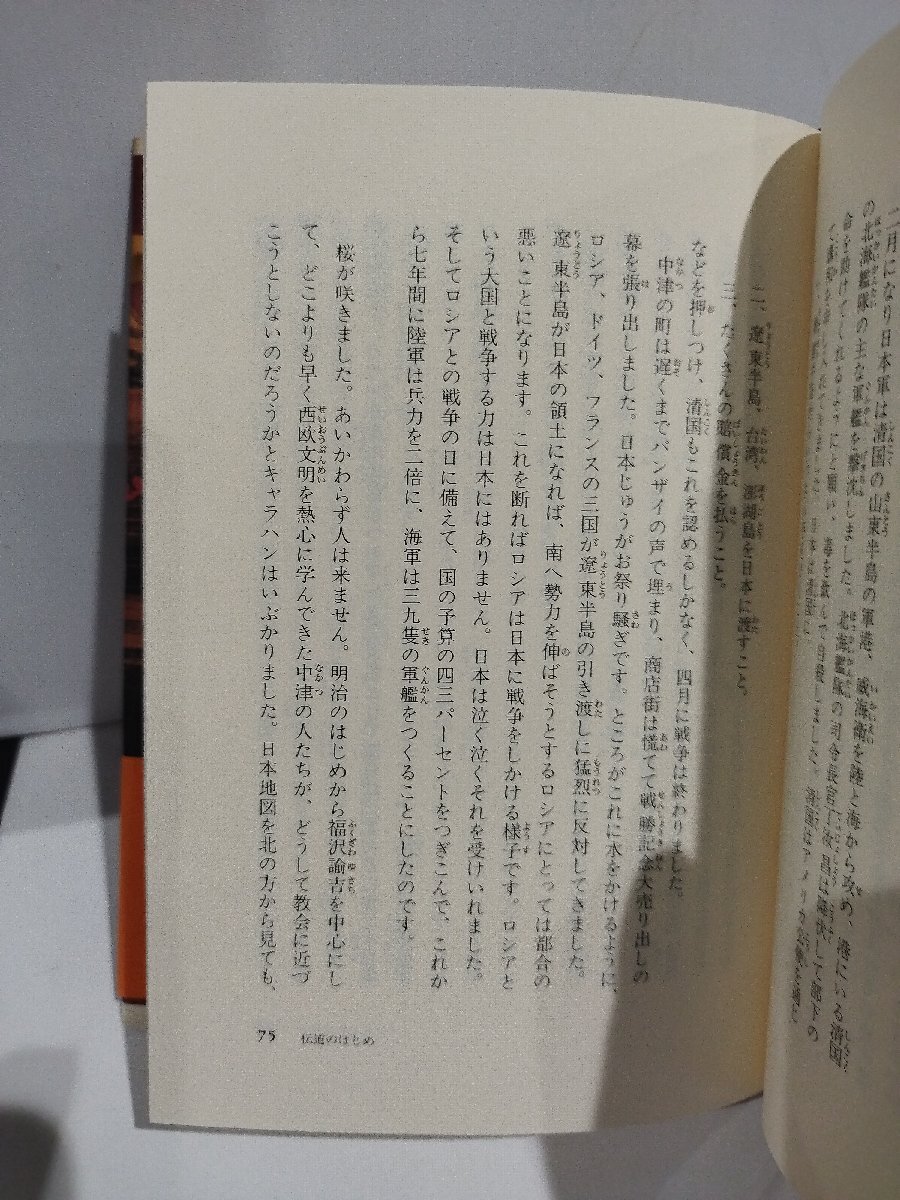 二月になり日本軍は清国の山東半島の軍港、威海衛を陸と海から攻め、港にいる清国
の北海艦隊の主な軍艦を撃沈しました。北海艦隊の司令長官丁汝昌は降伏して部下の
命を助けてくれるようにと願い、海を
二、遼東半島、台湾、澎湖島を日本に渡すこと。
三、たくさんの賠償金を払うこと。
などを押しつけ、清国もこれを認めるしかなく、四月に戦争は終わりました。
中津の町は遅くまでバンザイの声で埋まり、商店街は慌てて戦勝記念大売り出しの
幕を張り出しました。日本じゅうがお祭り騒ぎです。ところがこれに水をかけるように、
ロシア、ドイツ、フランスの三国が遼東半島の引き渡しに猛烈に反対してきました。
遼東半島が日本の領土になれば、南へ勢力を伸ばそうとするロシアにとっては都合の
悪いことになります。これを断ればロシアは日本に戦争をしかける様子です。ロシアと
いう大国と戦争する力は日本にはありません。日本は泣く泣くそれを受けいれました。
そしてロシアとの戦争の日に備えて、国の予算の四三パーセントをつぎこんで、これか
ら七年間に陸軍は兵力を二倍に、海軍は三九隻の軍艦をつくることにしたのです。
桜が咲きました。あいかわらず人は来ません。明治のはじめから福沢諭吉を中心にし
て、どこよりも早く西欧文明を熱心に学んできた中津の人たちが、どうして教会に近づ
こうとしないのだろうかとキャラハンはいぶかりました。日本地図を北の方から見ても、
75 伝道のはじめ